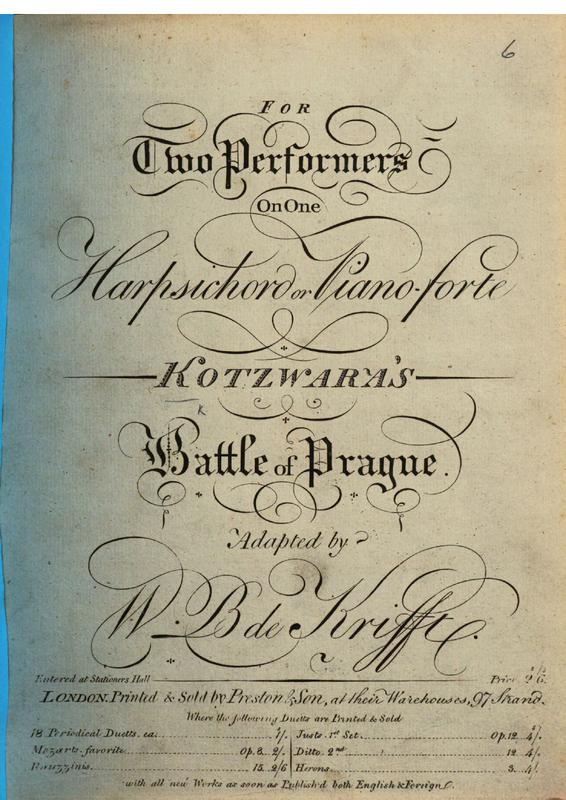 6
FOR
Two Performers
On One
Harpsichord or Piano-forte
KOTZWARA'S
K
Battle of Prague.
Adapted by
W. B de Krifft.
Entered at Stationers Hall Price 2/6.
LONDON. Printed & Sold by Preston & Son, at their Warehouses, 97 Strand.
Where the following Duetts are Printed & Sold
18 Periodical Duetts. ea. 1/. Justs. 1st Set. Op. 12 4/.
Mozarts. favorite Op. 3. 2/. Ditto. 2nd 12. 4/.
Rauzzinis. 15. 2/6 Herons. 3. 4/.
with all new Works as soon as Publish'd both English & Foreign